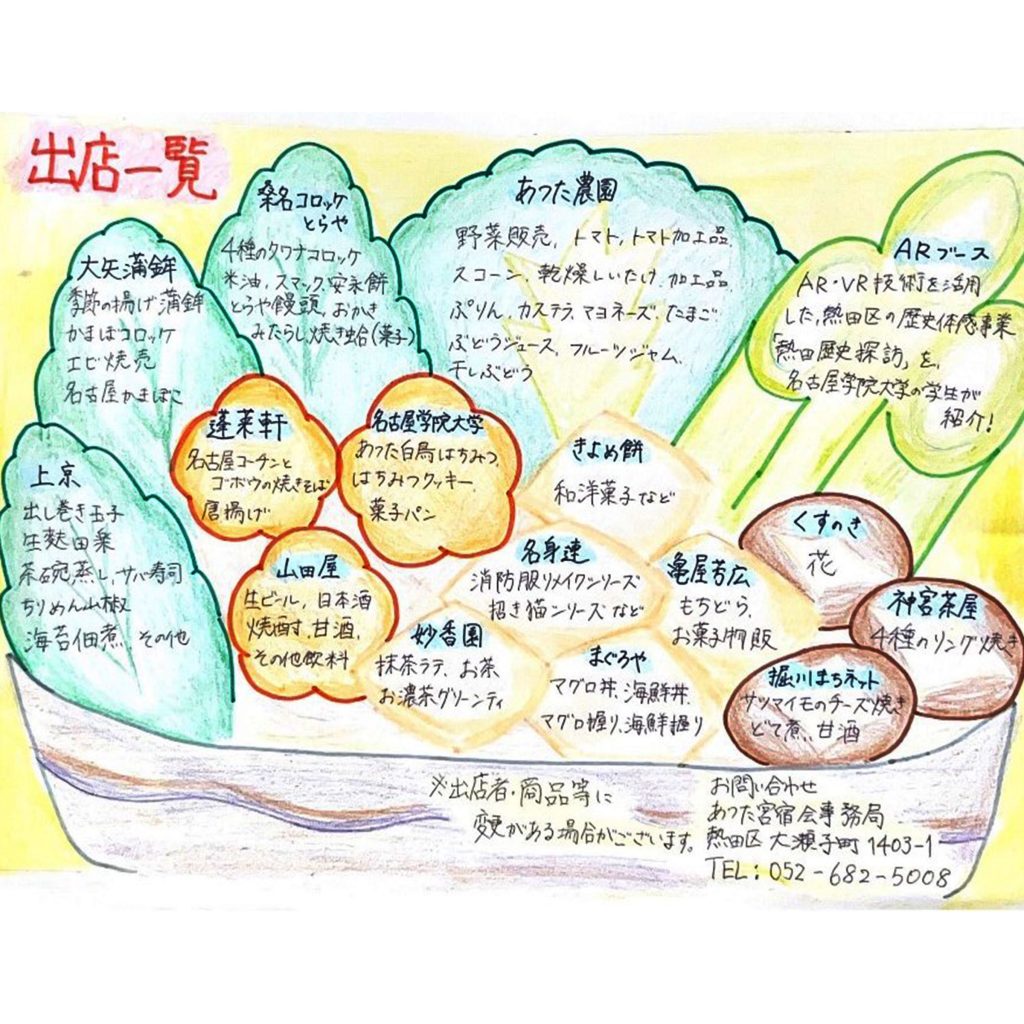 出店一覧
大矢蒲鉾
季節の揚げ蒲鉾
かまぼコロッケ
エビ焼売
名古屋かまぼこ
桑名コロッケ
とらや
4種のクワナコロッケ
米油,スマック,安永餅
とらや饅頭,おかき
みたらし焼き蛤(菓子)
あつた農園
野菜販売,トマト,トマト加工品,
スコーン,乾燥しいたけ,加工品,
ぷりん,カステラ,マヨネーズ,たまご,
ぶどうジュース,フルーツジャム,
干しぶどう
ARブース
AR・VR技術を活用
した,熱田区の歴史体感事業
「熱田歴史探訪」を,
名古屋学院大学の学生が
紹介!
上京
出し巻き玉子
生麩田楽
茶碗蒸し,サバ寿司
ちりめん山椒
海苔佃煮,その他
蓬莱軒
名古屋コーチンと
ゴボウの焼きそば
唐揚げ
名古屋学院大学
あつた白鳥はちみつ,
はちみつクッキー,
菓子パン
山田屋
生ビール,日本酒
焼酎,甘酒,
その他飲料
きよめ餅
和洋菓子など
名身連
消防服リメイクシリーズ
招き猫シリーズなど
妙香園
抹茶ラテ,お茶
お濃茶グリーンティ
まぐろや
マグロ丼,海鮮丼,
マグロ握り,海鮮握り
亀屋芳広
もちどら,
お菓子物販
くすのき
花
神宮茶屋
4種のリング焼き
堀川まちネット
サツマイモのチーズ焼き
どて煮,甘酒
※出店者・商品等に
変更がある場合がございます。
お問い合わせ
あつた宮宿会事務局
熱田区大瀬子町1403-1
TEL:052-682-5008